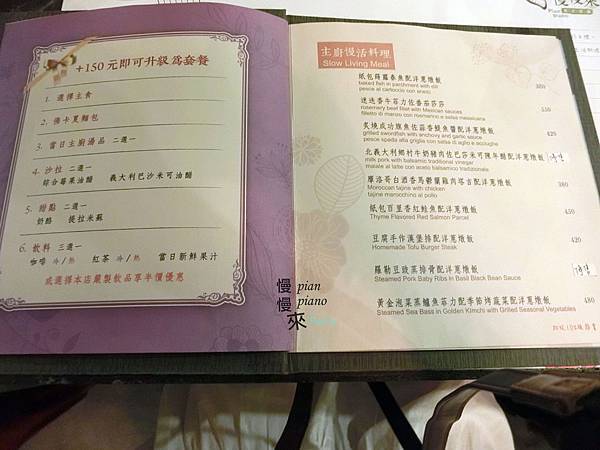 +150元即可升級為套餐
1. 選擇主食
2. 佛卡夏麵包
3. 當日主廚湯品 二選一
4. 沙拉 二選一
綜合莓果油醋 義大利巴沙米可油醋
5. 甜點 二選一
奶酪 提拉米蘇
6. 飲料 三選一
咖啡 冷/熱 紅茶 冷/熱 當日新鮮果汁
或選擇本店嚴製飲品享半價優惠
主廚慢活料理
Slow Living Meal
紙包蒔蘿泰魚配洋蔥燉飯
baked fish in parchment with dill
pesce al cartoccio con aneto
380
迷迭香牛菲力佐番茄莎莎
rosemary beef fillet with Mexican sauces
filetto di manzo con rosmarino e salsa messicana
550
炙燒成功旗魚佐蒜香鯷魚醬配洋蔥燉飯
grilled swordfish with anchovy and garlic sauce
pesce spada alla griglia con salsa di aglio e acciughe
420
北義大利鄉村牛奶豬肉佐巴莎米可陳年醋配洋蔥燉飯
milk pork with balsamic traditional vinegar
maiale al latte con aceto balsamico tradizionale
摩洛哥白酒香馬鬱蘭雞肉塔吉配洋蔥燉飯
Moroccan tajine with chicken
tajine marocchino al pollo
380
紙包百里香紅鮭魚配洋蔥燉飯
Thyme Flavored Red Salmon Parcel
450
豆腐手作漢堡排配洋蔥燉飯
Homemade Tofu Burger Steak
420
羅勒豆豉蒸排骨配洋蔥燉飯
Steamed Pork Baby Ribs In Basil Black Bean Sauce
黃金泡菜蒸鱸魚菲力配季節烤蔬菜配洋蔥燉飯
Steamed Sea Bass in Golden Kimchi with Grilled Seasonal Vegetables
480
慢 pian
慢 piano
來